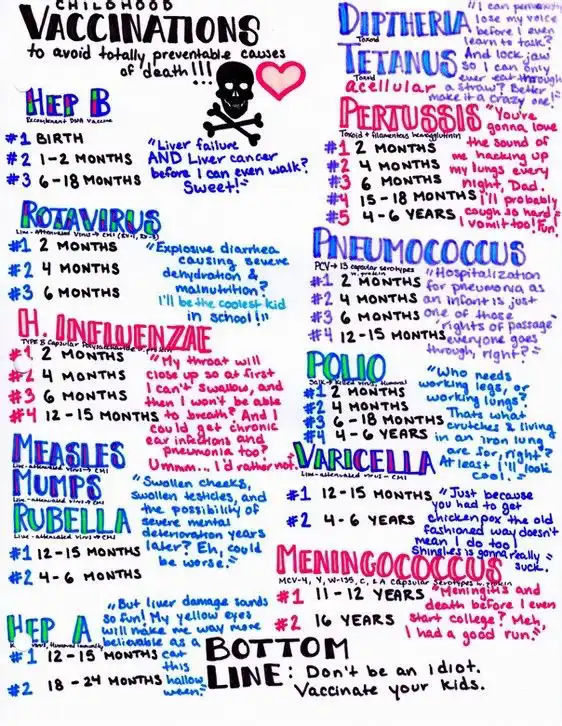 CHILDHOOD
VACCINATIONS
to avoid totally preventable causes
of death!!!
HEP B
Recombinant DNA Vaccine
#1 BIRTH
#2 1-2 MONTHS
#3 6-18 MONTHS
"Liver failure
AND Liver cancer
before I can even walk?
Sweet!"
ROTAVIRUS
#1 2 MONTHS
#2 4 MONTHS
#3 6 MONTHS
"Explosive diarrhea
causing severe
dehydration &
malnutrition?
I'll be the coolest kid
in school!"
H. INFLUENZAE
TYPE B Capsular Polysaccharide w. protein
#1 2 MONTHS
#2 4 MONTHS
#3 6 MONTHS
#4 12-15 MONTHS
"My throat will
close up so at first
I can't swallow, and
then I won't be able
to breathe? And I
could get chronic
ear infections and
pneumonia too?
Ummm... I'd rather not."
MEASLES
Live-attenuated virus → CMI
MUMPS
Live-attenuated virus → CMI
RUBELLA
Live-attenuated virus → CMI
#1 12-15 MONTHS
#2 4-6 MONTHS
"Swollen cheeks,
swollen testicles, and
the possibility of
severe mental
deterioration years
later? Eh, could
be worse."
HEP A
#1 12-15 MONTHS
#2 18-24 MONTHS
"But liver damage sounds
so fun! My yellow eyes
will make me way more
believable as a
cat
this
hallow
ween."
DIPTHERIA
Toxoid
TETANUS
Toxoid
"I can permanently
lose my voice
before I even
learn to talk?
And lock jaw
so I can only
ever eat through
a straw? Better
make it a crazy one!"
acellular
PERTUSSIS
Toxoid + filamentous hemagglutinin
#1 2 MONTHS
#2 4 MONTHS
#3 6 MONTHS
#4 15-18 MONTHS
#5 4-6 YEARS
"You're
gonna love
the sound of
me hacking up
my lungs every
night, Dad.
I'll probably
cough so hard
I vomit too! Fun!"
PNEUMOCOCCUS
PCV → 13 capsular serotypes
w. protein
#1 2 MONTHS
#2 4 MONTHS
#3 6 MONTHS
#4 12-15 MONTHS
"Hospitalization
for pneumonia as
an infant is just
one of those
"rights of passage"
everyone goes
through, right?"
POLIO
Salk → Killed virus, Humoral
#1 2 MONTHS
#2 4 MONTHS
#3 6-18 MONTHS
#4 4-6 YEARS
"Who needs
working legs, or
working lungs?
Thats what
crutches & living
in an iron lung
are for, right?
At least I'll look
cool."
VARICELLA
Live-attenuated virus - CMI
#1 12-15 MONTHS
#2 4-6 YEARS
"Just because
you had to get
chickenpox the old
fashioned way doesn't
mean I do too!
Shingles is gonna really
suck."
MENINGOCOCCUS
MCV-4, Y, W-135, C, & A Capsular Serotypes w. protein
#1 11-12 YEARS
#2 16 YEARS
"Meningitis and
death before I even
start college? Meh,
I had a good run."
BOTTOM
LINE: Don't be an idiot.
Vaccinate your kids.